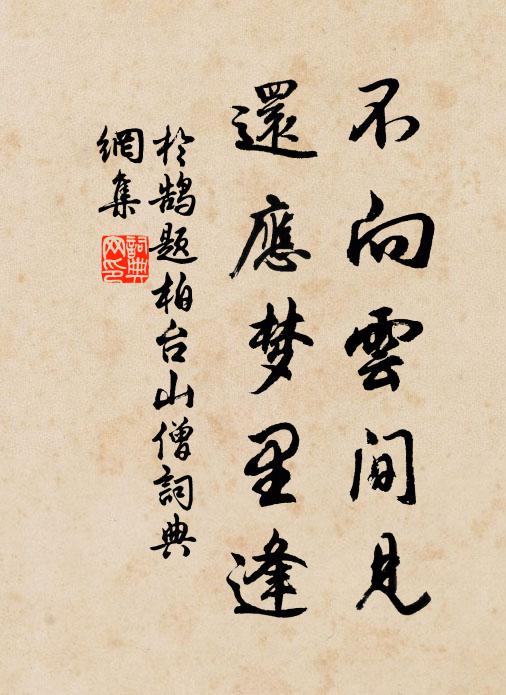 不向雲間見
還應梦里逢
於鹄题柏台山僧詞典
網集
詞典
网印